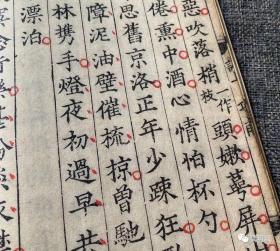 惡吹落梢一作枝頭嫩萼屏
倦薰中酒心情怕杯勺
思舊京洛正年少疎狂
障泥油壁催梳掠曾馳
林携手燈夜初過早共
漂泊